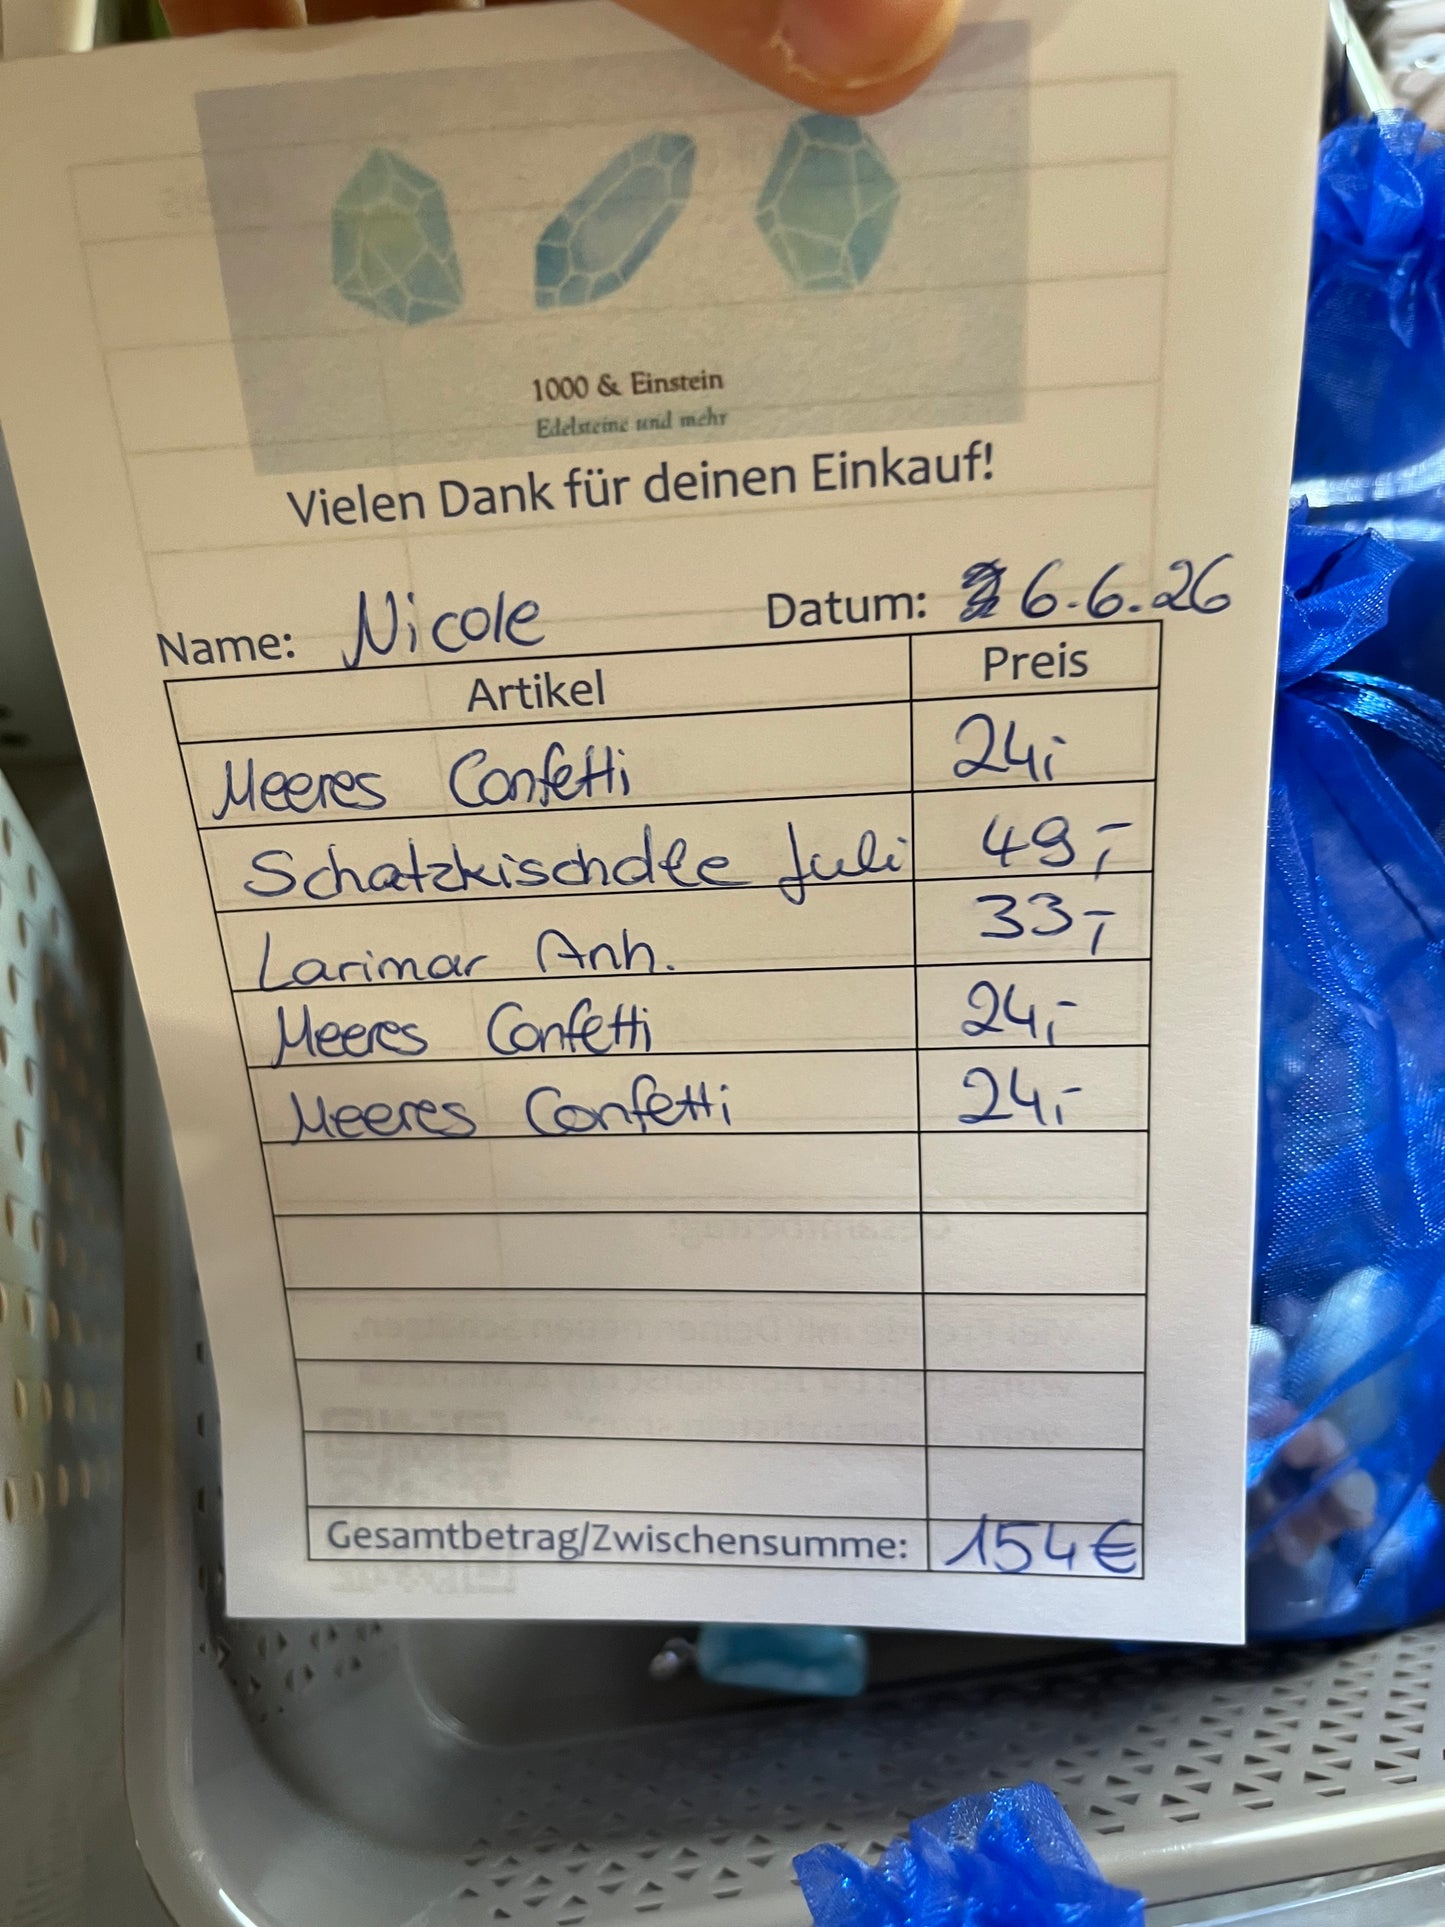 1000 & Einstein
Edelsteine und mehr
Vielen Dank für deinen Einkauf!
Name: Nicole Datum: 6.6.26
Artikel Preis
Meeres Confetti 24,-
Schatzkischdle Juli 49,-
Larimar Anh. 33,-
Meeres Confetti 24,-
Meeres Confetti 24,-
Gesamtbetrag/Zwischensumme: 154€